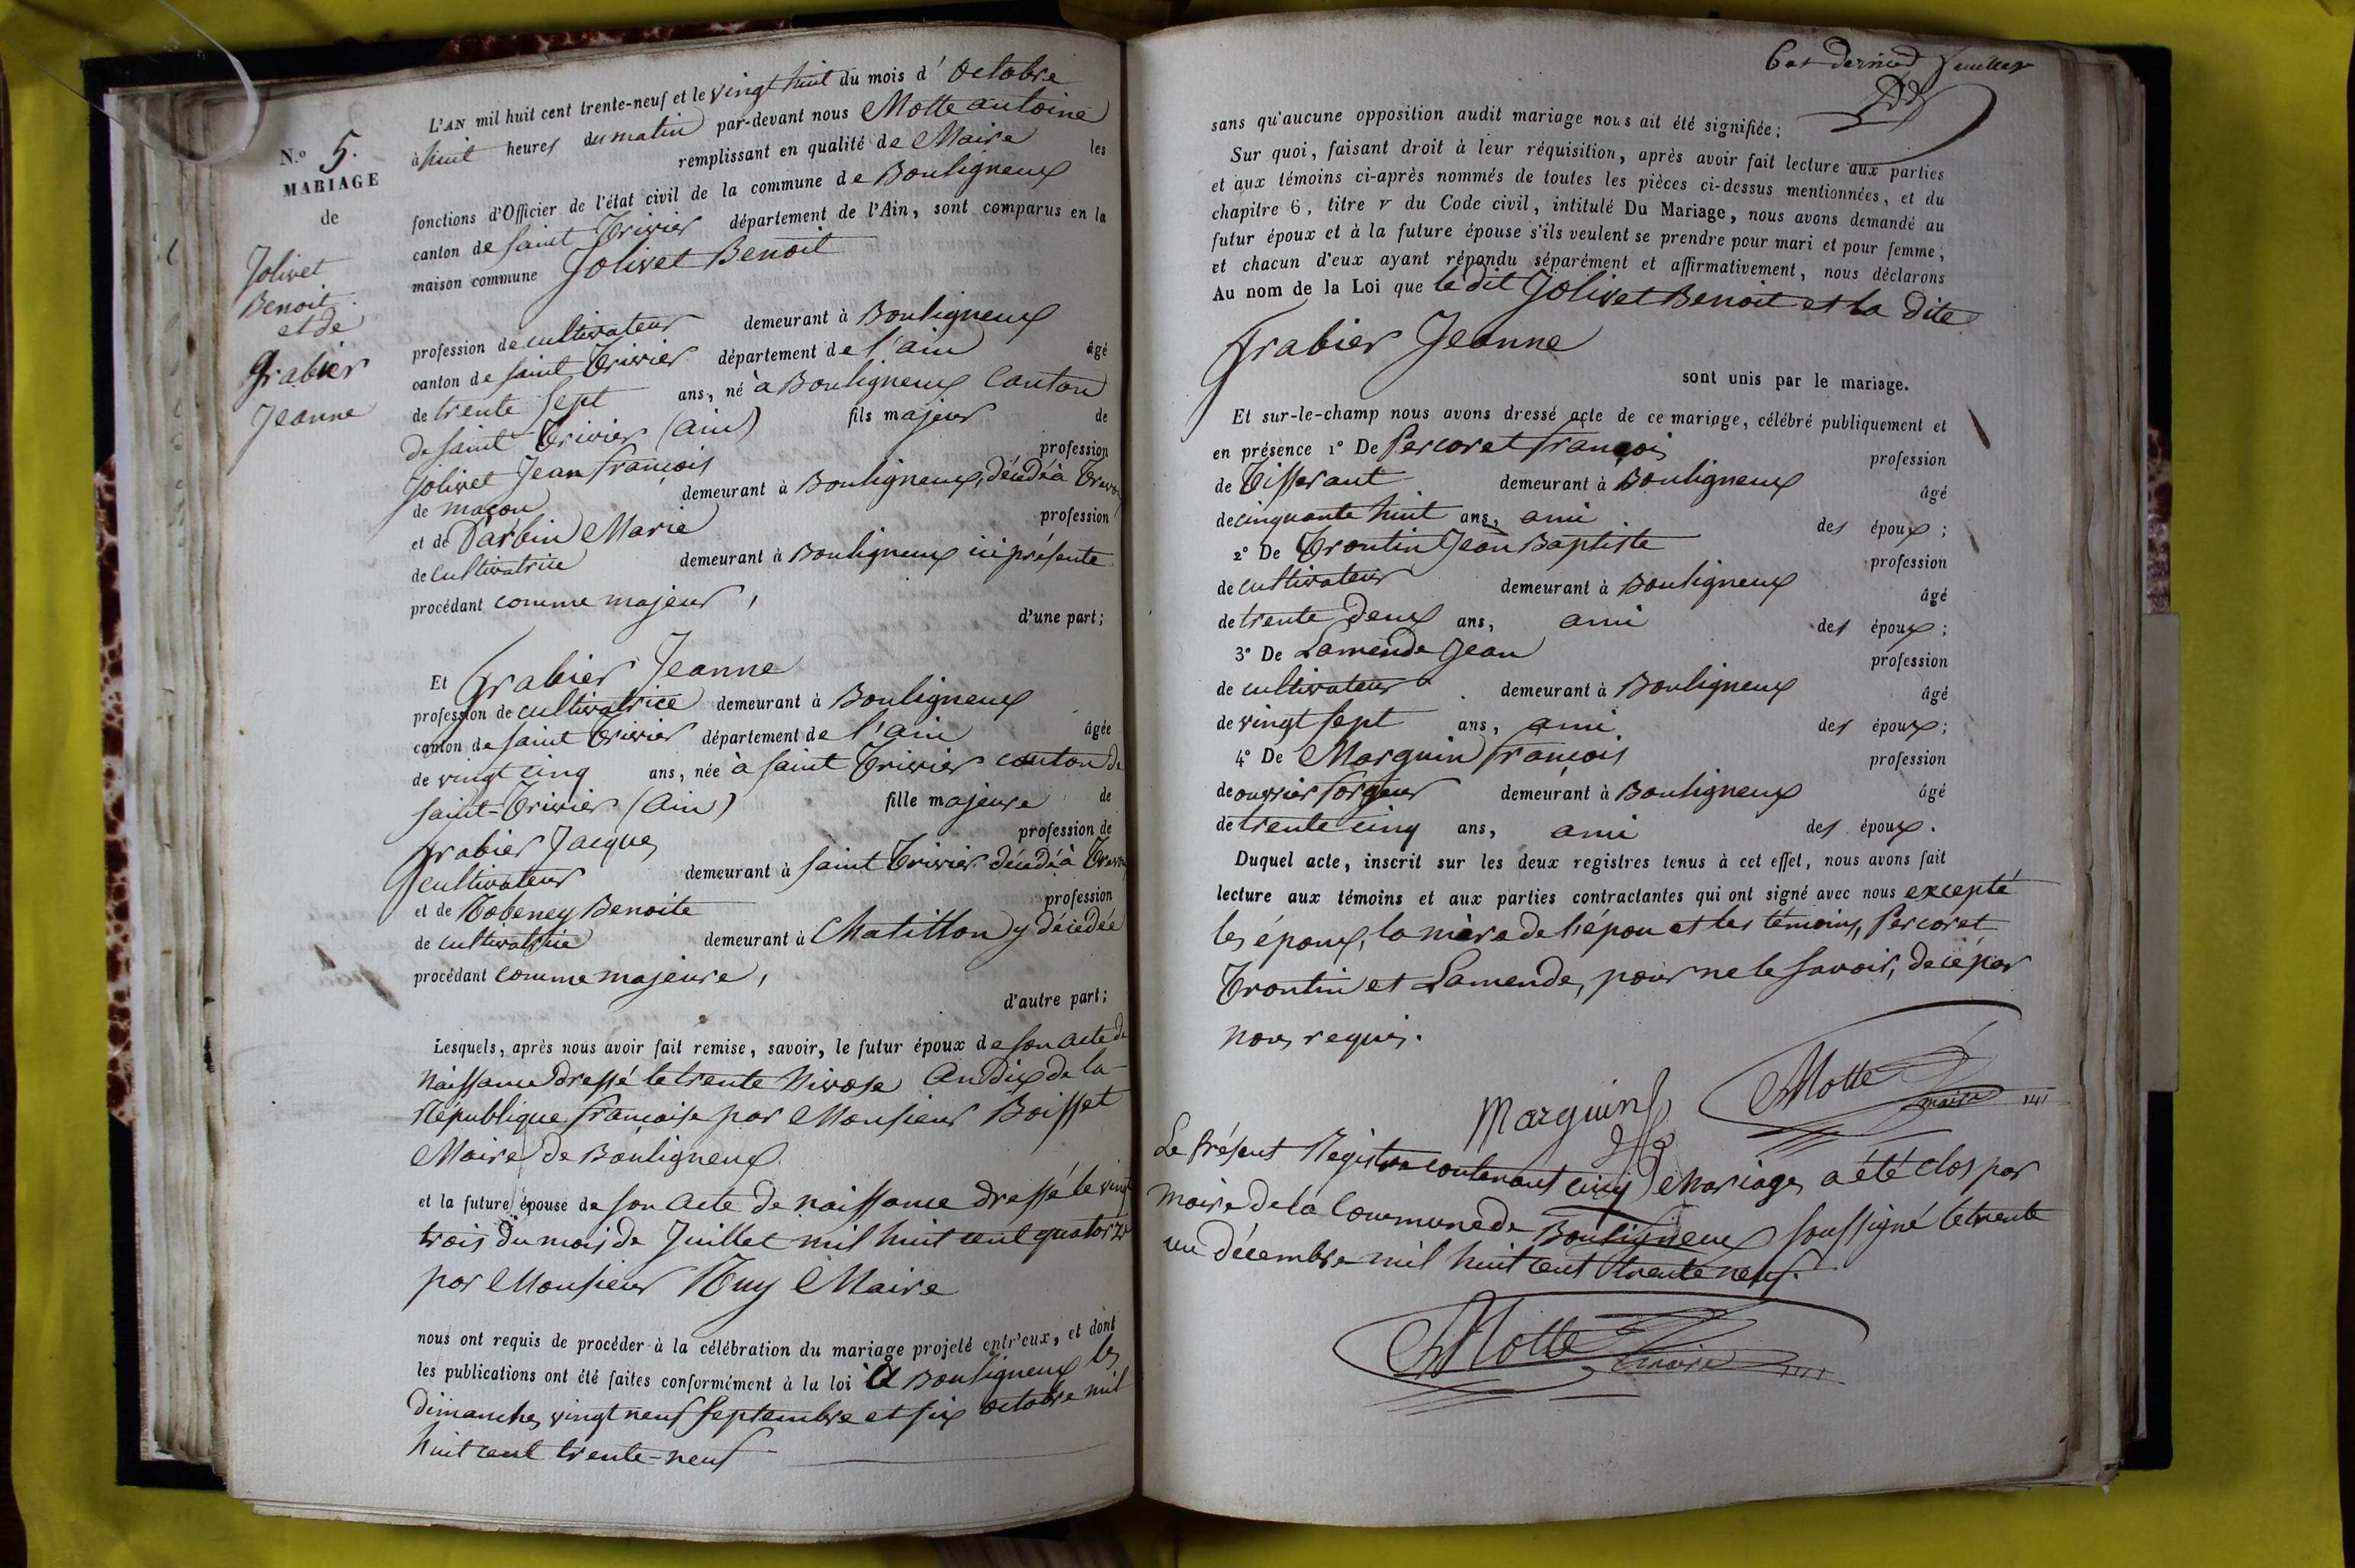 N.o 5.
MARIAGE
de
Jolivet
Benoit
et de
Grabier
Jeanne
L'AN mil huit cent trente-neuf et le vingt huit du mois d' octobre
à huit heures du matin par-devant nous Motte antoine
remplissant en qualité de Maire les
fonctions d'Officier de l'état civil de la commune de Bouligneux
canton de saint Trivier département de l'Ain, sont comparus en la
maison commune Jolivet Benoit
profession de cultivateur demeurant à Bouligneux
canton de saint Trivier département de l'ain âgé
de trente sept ans, né à Bouligneux Canton
de saint Trivier (ain) fils majeur de
Jolivet Jean françois profession
de maçon demeurant à Bouligneux, décédé à
et de Darbin Marie profession
de cultivatrice demeurant à Bouligneux ici présente
procédant comme majeur, d'une part;
Et Grabier Jeanne
profession de cultivatrice demeurant à Bouligneux
canton de saint Trivier département de l'ain âgée
de vingt cinq ans, née à saint Trivier canton de
saint-Trivier (ain) fille majeure de
Grabier Jacques profession de
cultivateur demeurant à saint Trivier décédé à
et de Robeney Benoite profession
de cultivatrice demeurant à Chatillon y décédée
procédant comme majeure,
d'autre part;
Lesquels, après nous avoir fait remise, savoir, le futur époux de son acte de
naissance dressé le trente Nivose an Dix de la
République française par Monsieur Boisset
Maire de Bouligneux
et la future épouse de son acte de naissance dressé le vingt
trois du mois de Juillet mil huit cent quatorze
par Monsieur Ruy Maire
nous ont requis de procéder à la célébration du mariage projeté entr'eux, et dont
les publications ont été faites conformément à la loi à Bouligneux les
Dimanches vingt neuf septembre et six octobre mil
huit cent trente-neuf
6e et dernier feuillet
sans qu'aucune opposition audit mariage nous ait été signifiée;
Sur quoi, faisant droit à leur réquisition, après avoir fait lecture aux parties
et aux témoins ci-après nommés de toutes les pièces ci-dessus mentionnées, et du
chapitre 6, titre v du Code civil, intitulé Du Mariage, nous avons demandé au
futur époux et à la future épouse s'ils veulent se prendre pour mari et pour femme;
et chacun d'eux ayant répondu séparément et affirmativement, nous déclarons
Au nom de la Loi que le dit Jolivet Benoit et la dite
Grabier Jeanne
sont unis par le mariage.
Et sur-le-champ nous avons dressé acte de ce mariage, célébré publiquement et
en présence 1° De Percoret françois profession
de Tisserant demeurant à Bouligneux âgé
de cinquante huit ans, ami des époux;
2° De Trontin Jean Baptiste profession
de cultivateur demeurant à Bouligneux âgé
de trente deux ans, ami des époux;
3° De Lamende Jean profession
de cultivateur demeurant à Bouligneux âgé
de vingt sept ans, ami des époux;
4° De Marguin françois profession
de ouvrier forgeur demeurant à Bouligneux âgé
de trente cinq ans, ami des époux.
Duquel acte, inscrit sur les deux registres tenus à cet effet, nous avons fait
lecture aux témoins et aux parties contractantes qui ont signé avec nous excepté
les époux, la mère de l'épou et les témoins, Percoret
Trontin et Lamende, pour ne le savoir, de ce par
nous requis.
Marguin f
Motte
maire
Le Présent Registre contenant cinq Mariages a été clos par
maire de la Commune de Bouligneux soussigné le trente
un décembre mil huit cent trente neuf.
Motte
maire